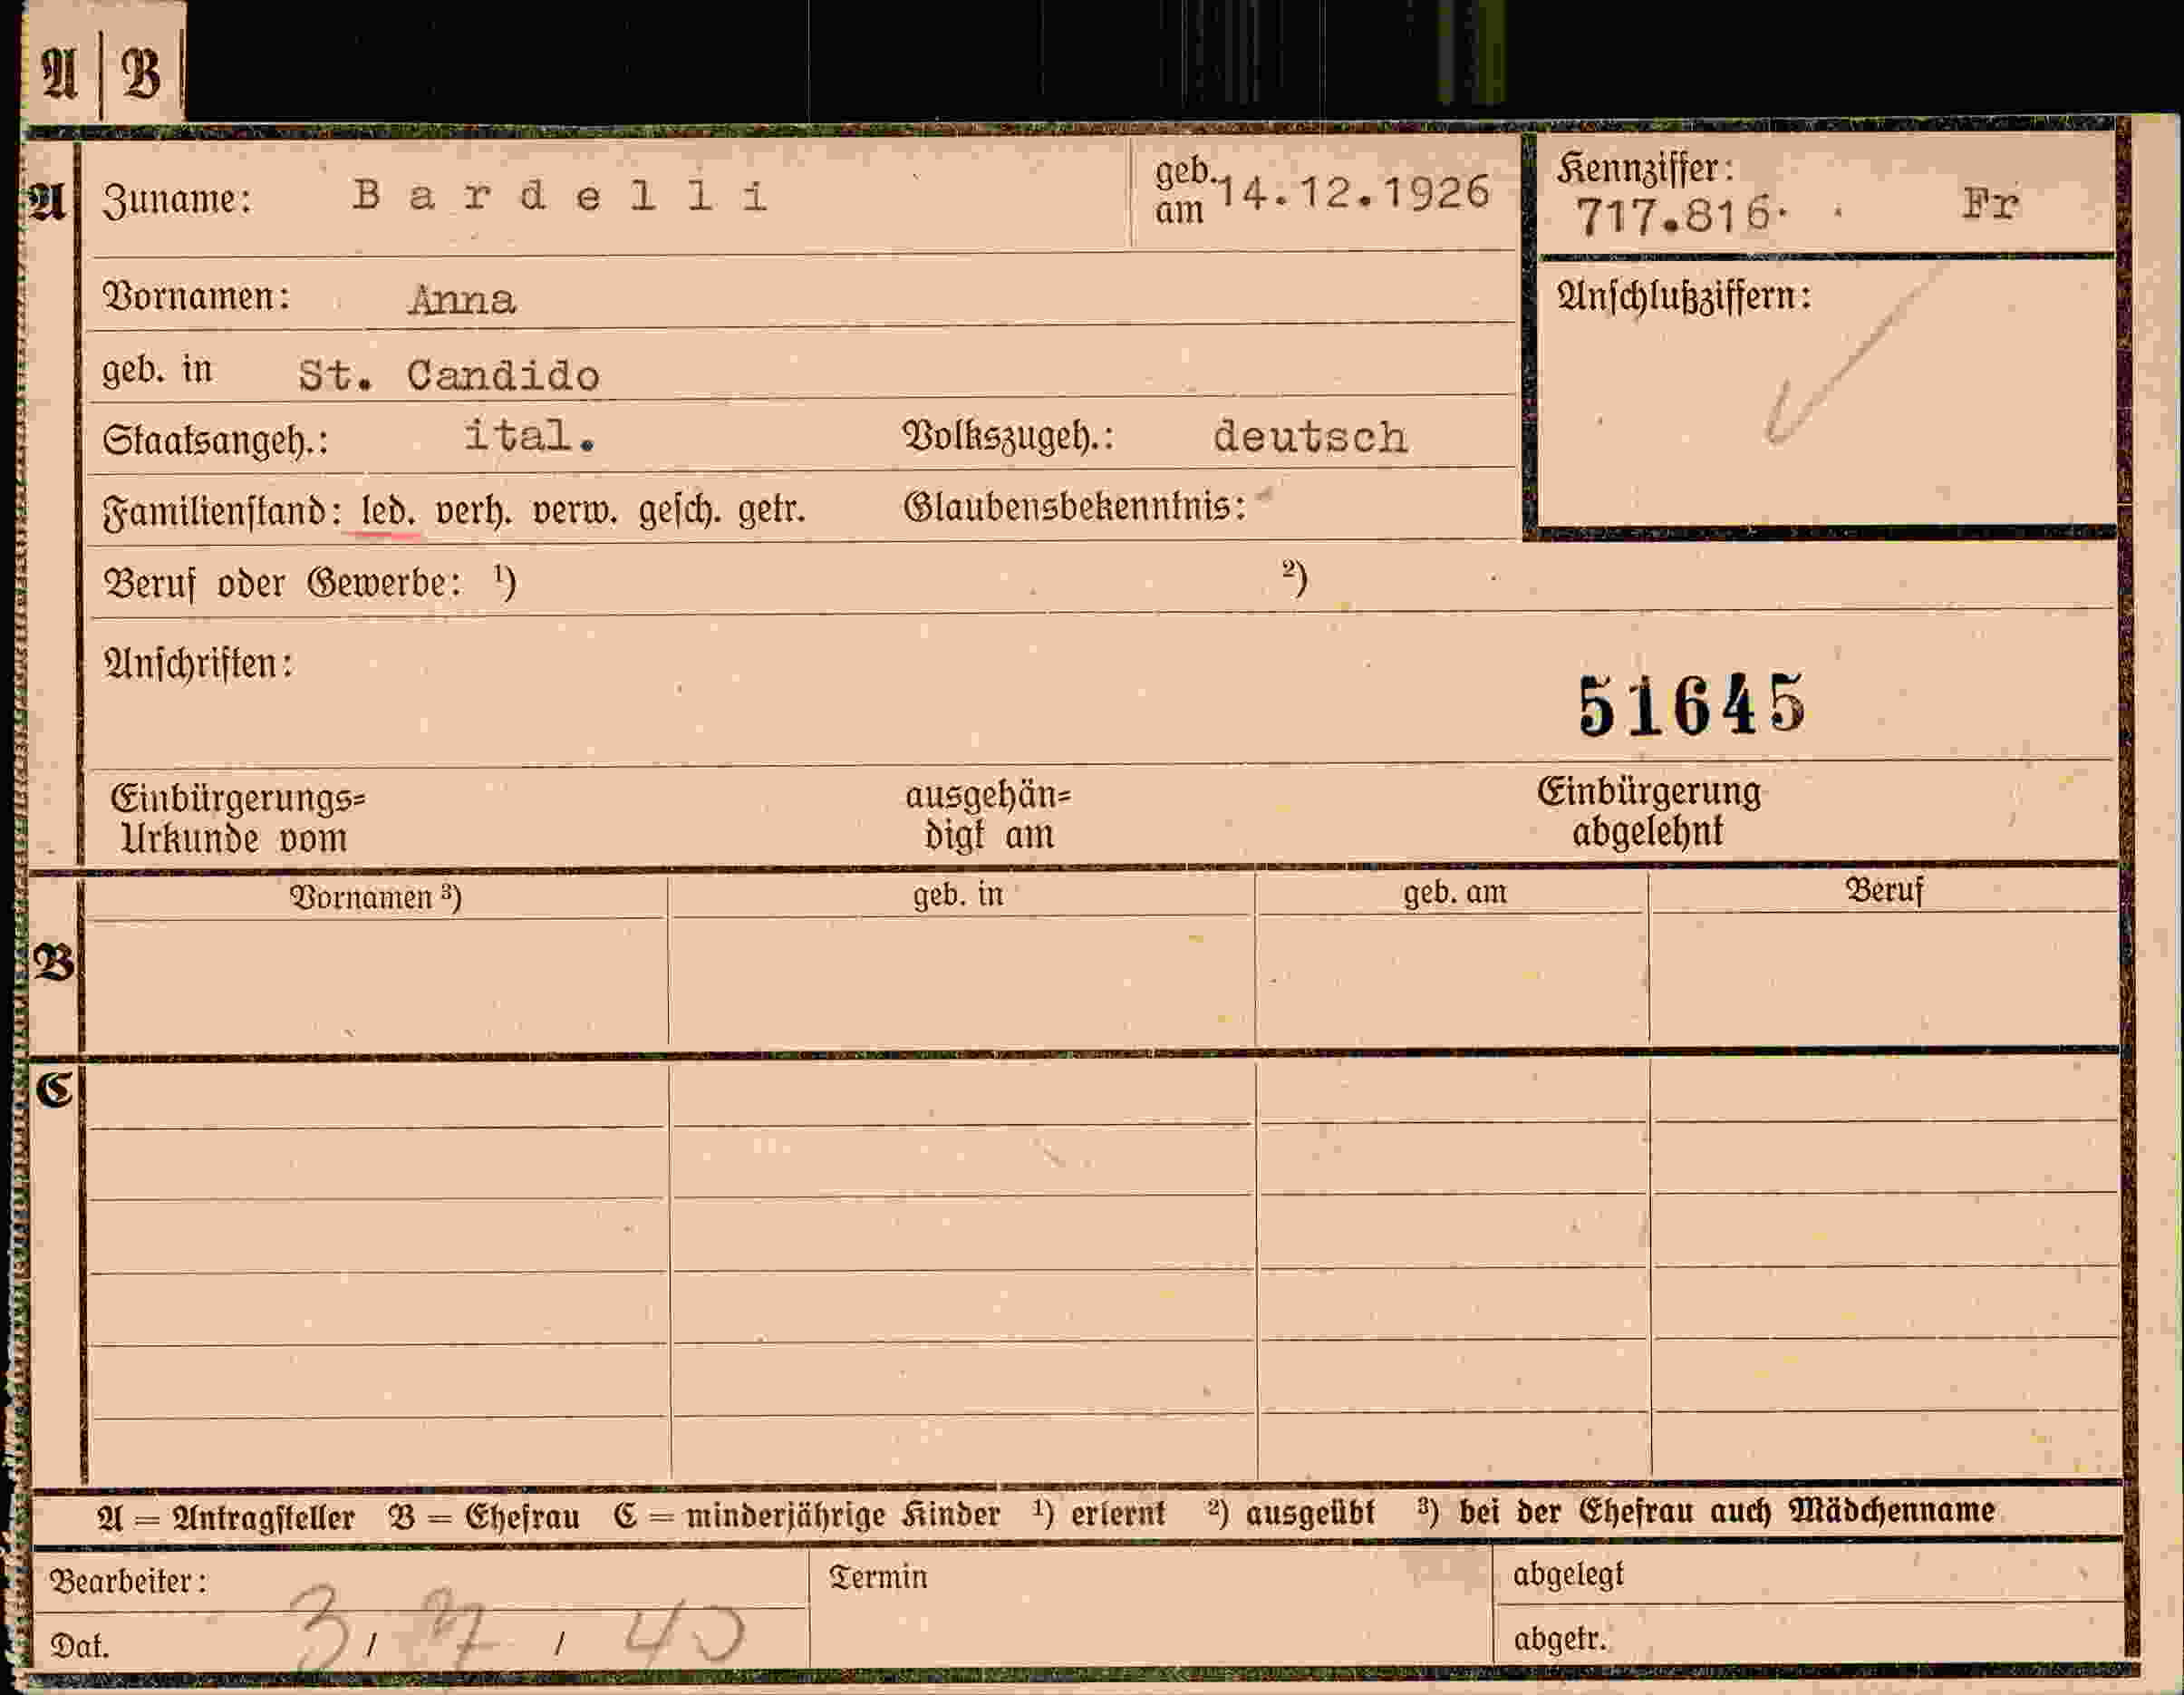 A | B
A Zuname: Bardelli geb. am 14.12.1926 Kennziffer: 717.816. Fr
Vornamen: Anna Anschlußziffern:
geb. in St. Candido
Staatsangeh.: ital. Volkszugeh.: deutsch
Familienstand: led. verh. verw. gesch. getr. Glaubensbekenntnis:
Beruf oder Gewerbe: ¹) ²)
Anschriften:
51645
Einbürgerungs= ausgehän= Einbürgerung
Urkunde vom digt am abgelehnt
Vornamen ³) geb. in geb. am Beruf
B
C
A = Antragsteller B = Ehefrau C = minderjährige Kinder ¹) erlernt ²) ausgeübt ³) bei der Ehefrau auch Mädchenname
Bearbeiter: Termin abgelegt
Dat. 3 / / 40 abgetr.